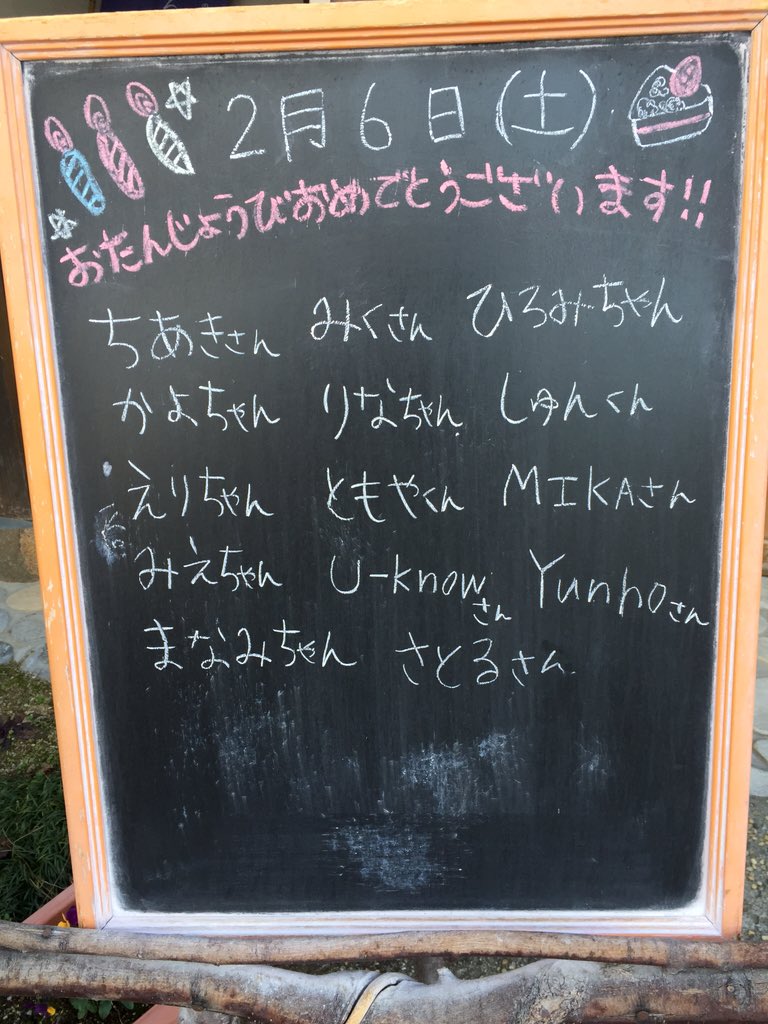 2月6日(土)
おたんじょうびおめでとうございます!!
ちあきさん みくさん ひろみちゃん
かよちゃん りなちゃん しゅんくん
えりちゃん ともやくん MIKAさん
みえちゃん U-knowさん Yunhoさん
まなみちゃん さとるさん